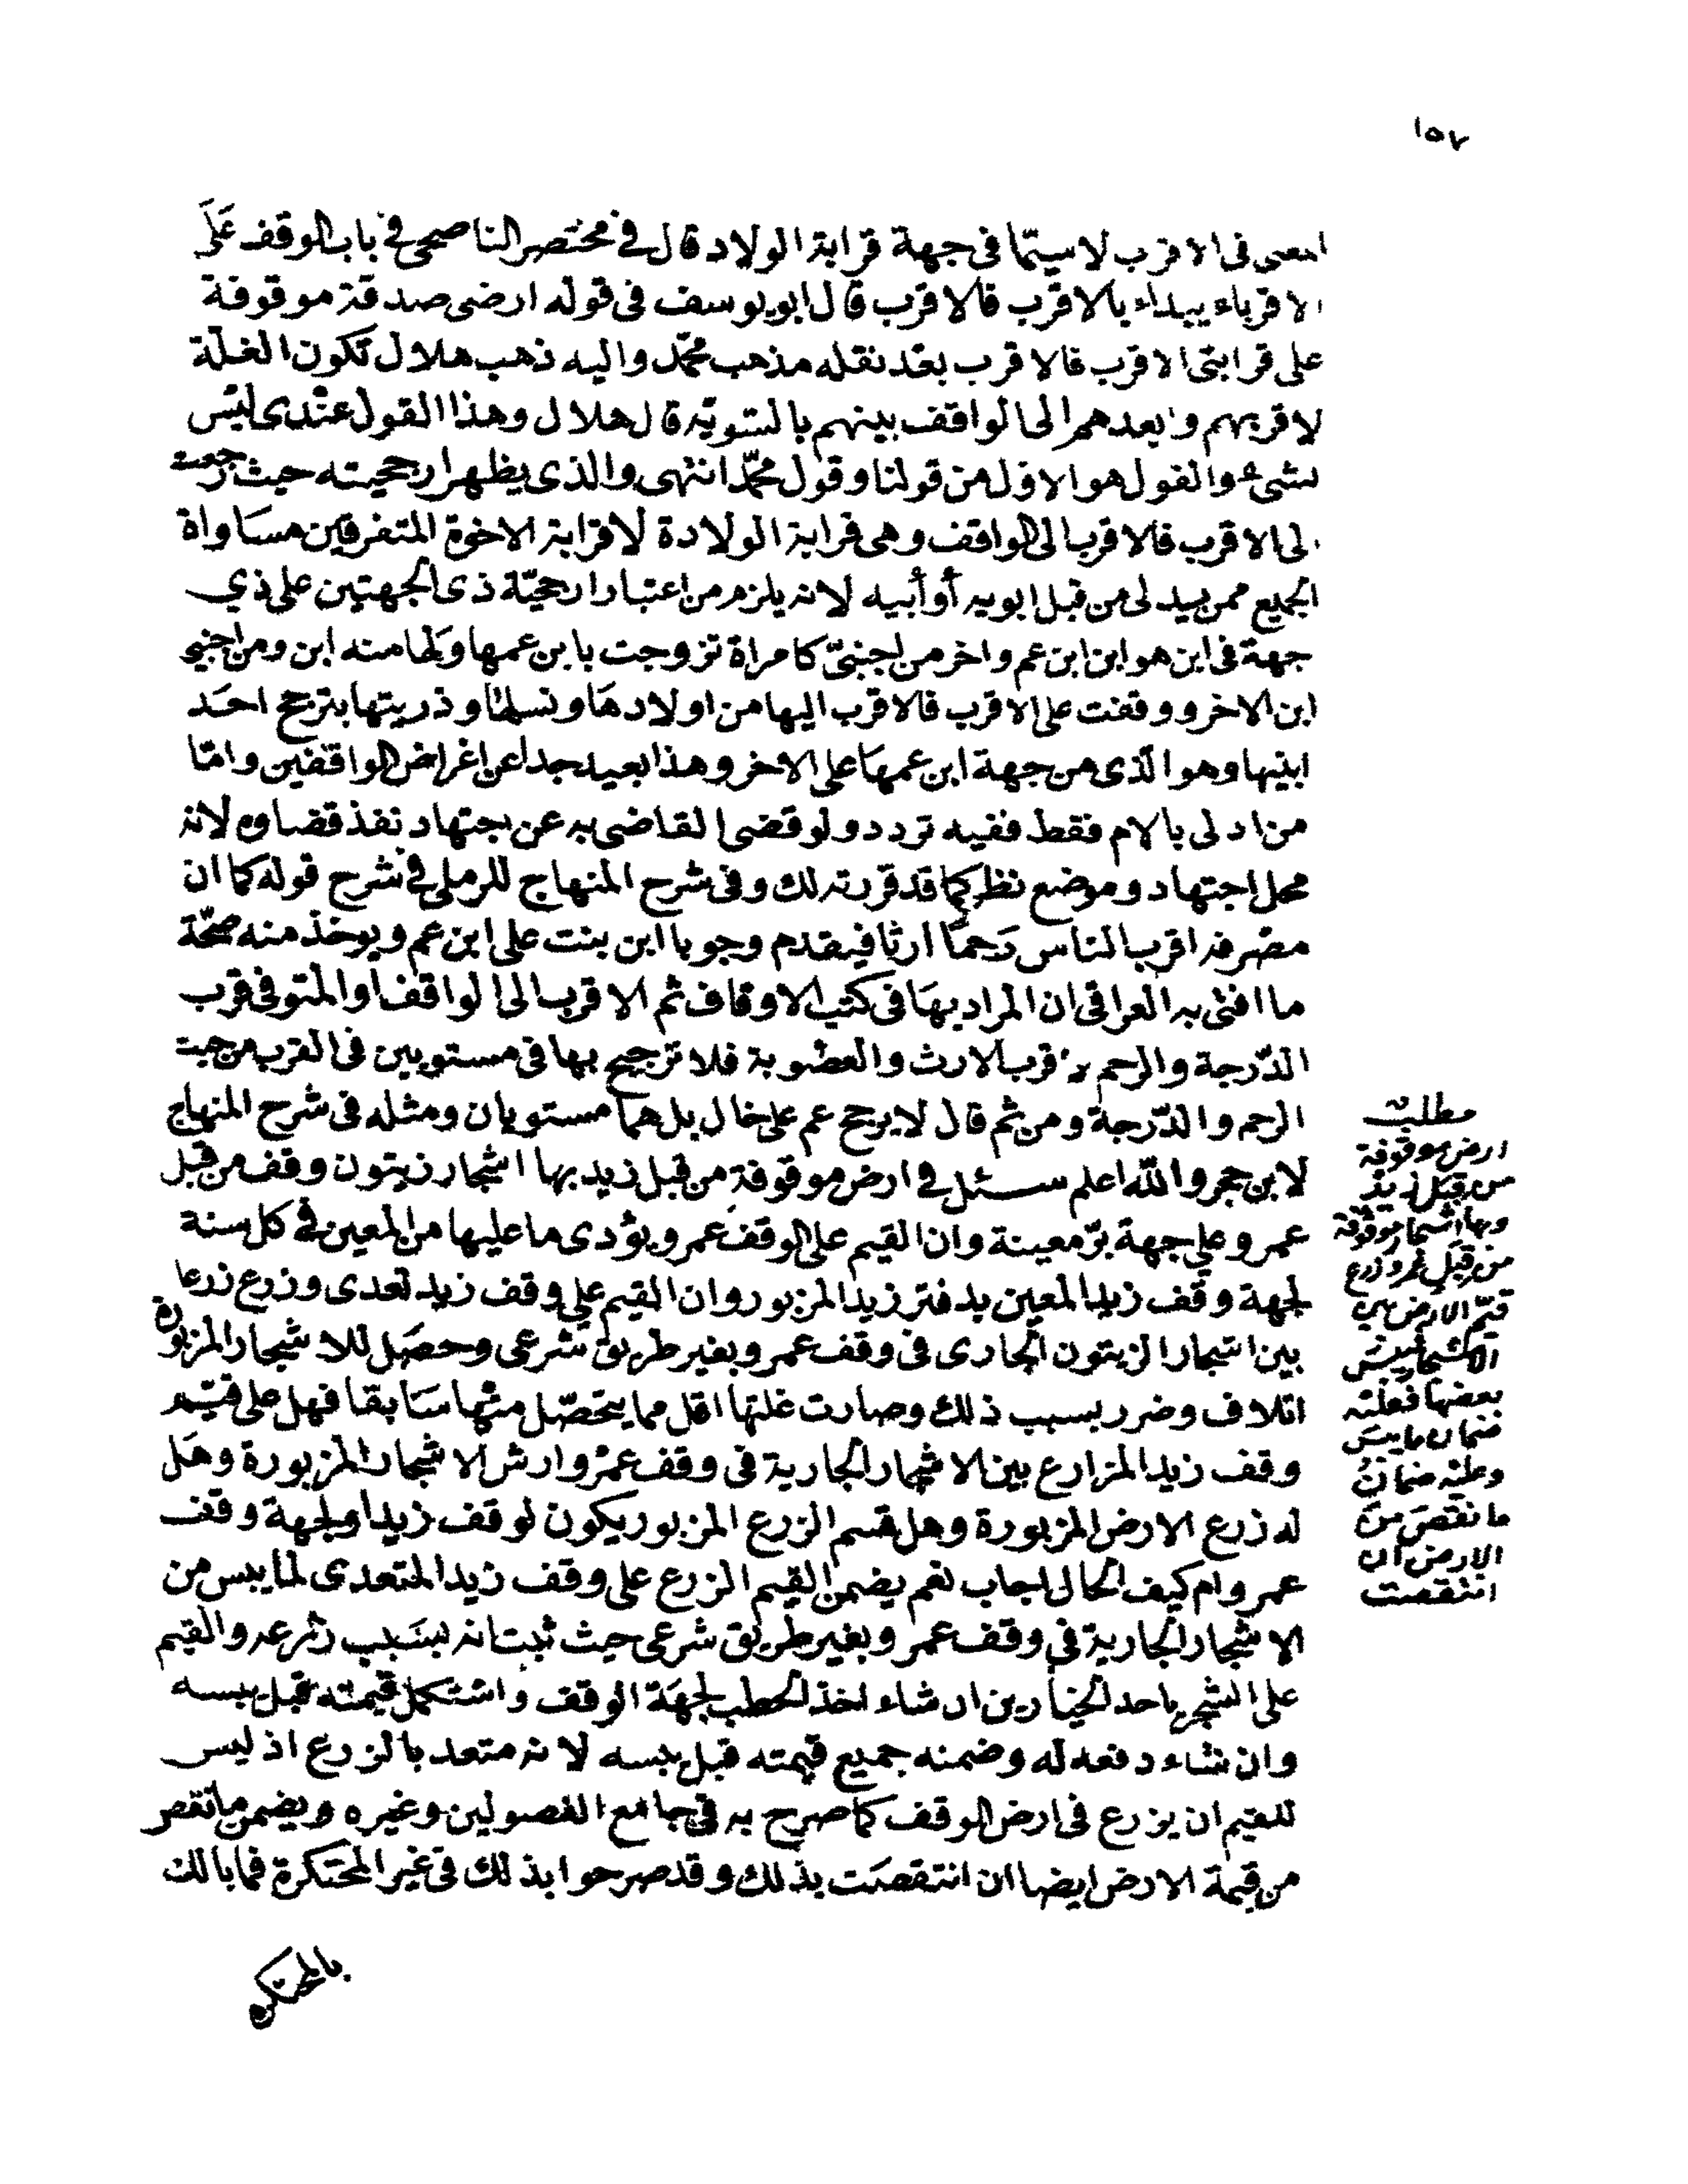 ١٥٧
المعنى فى الاقرب لا سيّما فى جهة قرابة الولاد قال فى مختصر الناصحى فى باب الوقف عَلَى
الاقرباء يبداء بالاقرب فالاقرب قال ابو يوسف فى قوله ارضى صدقة موقوفة
على قرابتى الاقرب فالاقرب بعد نقله مذهب محمّد واليه ذهب هلال تكون الغلّة
لاقربهم وابعدهم الى الواقف بينهم بالسّويّة قال هلال وهذا القول عندى ليس
بشىء والقول هو الاوّل من قولنا وقول محمّد انتهى والذى يظهر ارجحيته حيث رجعت
الى الاقرب فالاقرب الى الواقف وهى قرابة الولادة لا قرابة الاخوة المتفرقين مساواة
الجميع ممن يدلى من قبل ابويه أو أبيه لانه يلزم من اعتبار ارجحيّة ذى الجهتين على ذي
جهة فى ابن هو ابن ابن عم واخر من اجنبىّ كامراة تزوجت بابن عمها ولها منه ابن ومن اجنبي
ابن الاخر ووقفت على الاقرب فالاقرب اليها من اولادها ونسلها وذريتها بترجح احَد
ابنيها وهو الّذى من جهة ابن عمهَا على الاخر وهذا بعيد جدا عن اغراض الواقفين وامّا
من ادلى بالام فقط ففيه تردد ولو قضى القاضى به عن اجتهاد نفذ قضاوه لانه
محل اجتهاد وموضع نظر كما قد قررته لك وفى شرح المنهاج للرملى فى شرح قوله كما ان
مصرفه اقرب الناس رَحمًا ارثا فيقدم وجوبا ابن بنت على ابن عم ويوخذ منه صحّة
ما افتى به العراقى ان المراد بهَا فى كتب الاوقاف ثم الاقرب الى الواقف او المتوفى قرب
الدّرجة والرحم لا قرب الارث والعصوبة فلا ترجيح بها فى مستويين فى القرب من حيث
الرحم والدّرجة ومن ثم قال لا يرجح عم على خال بل هما مستويان ومثله فى شرح المنهاج
لابن حجر والله اعلم سئل فى ارض موقوفة من قبل زيد بها اشجار زيتون وقف من قبل
عمرو علي جهة برّ معينة وان القيم على الوقف عمرو يؤدى ما عليها من المعين فى كل سنة
لجهة وقف زيد المعين بدفتر زيد المزبور وان القيم علي وقف زيد تعدى وزرع زرعا
بين اشجار الزيتون الجارى فى وقف عمرو بغير طريق شرعى وحصَل للاشجار المزبورة
اتلاف وضرر بسبب ذلك وصارت غلتها اقل مما يتحصّل منها سَابقا فهل على قيّم
وقف زيد المزارع بين الاشجار الجارية فى وقف عمرو ارش الاشجار المزبورة وهَل
له زرع الارض المزبورة وهل قسم الزرع المزبور يكون لوقف زيد او لجهة وقف
عمرو ام كيف الحال اجاب نعم يضمن القيم الزرع على وقف زيد المتعدى لما يبس من
الاشجار الجارية فى وقف عمرو بغير طريق شرعى حيث ثبت انه بسَبب زرعه والقيم
على الشجر باحد الخيارين ان شاء اخذ الحطب لجهَة الوقف واستكمل قيمته قبل يبسه
وان شاء دفعه له وضمنه جميع قيمته قبل يبسه لانه متعد بالزرع اذ ليس
للقيم ان يزرع فى ارض الوقف كما صرح به فى جامع الفصولين وغيره ويضمن ما نقص
من قيمة الارض ايضا ان انتقصَت بذلك وقد صرحوا بذلك فى غير المحتكرة فما بالك
بالمحتكره
مطلب
ارض موقوفة
من قبل زيد
وبها اشجار موقوفة
من قبل عمرو زرع
قيّم الارض بين
الاشجار فيبس
بعضها فعليه
ضمان ما يبس
وعليه ضمان
ما نقص من
الارض ان
انتقصت